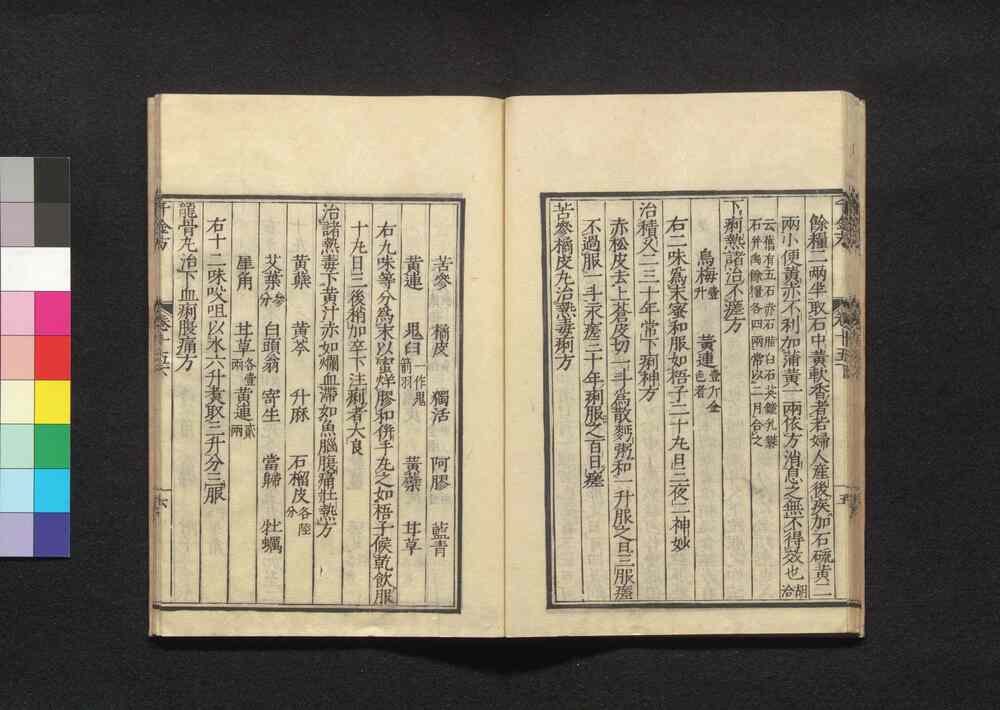 餘糧二兩半取石中黄軟香者若婦人産後疾加石硫黄二
兩小便黄赤不利加蒲黄一兩依方消息之無不得效也胡洽
云舊有五石赤石脂白石英鍾乳礬
石并禹餘糧各四兩常以二月合之
下痢熱諸治不瘥方
烏梅壹升 黄連壹斤金色者
右二味爲末蜜和服如梧子二十丸日三夜二神妙
治積久二三十年常下痢神方
赤松皮去上蒼皮切一斗爲散麪粥和一升服之日三服瘥
不過服一斗永瘥三十年痢服之百日瘥
苦參橘皮丸治熱毒痢方
苦參 橘皮 獨活 阿膠 藍青
黄連 鬼臼一作鬼箭羽 黄蘗 甘草
右九味等分爲末以蜜烊膠和併手丸之如梧子候乾飲服
十丸日三後稍加卒下注痢者大良
治諸熱毒下黄汁赤如爛血滯如魚腦腹痛壯熱方
黄蘗 黄芩 升麻 石榴皮各陸分
艾葉參分 白頭翁 寄生 當歸 牡蠣
犀角 甘草各壹兩 黄連貳兩
右十二味㕮咀以水六升煑取三升分三服
龍骨丸治下血痢腹痛方